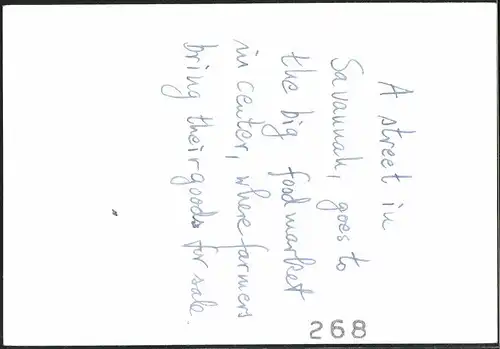 A street in
Savannah, goes to
the big food market
in center, where farmers
bring their goods for sale.
268